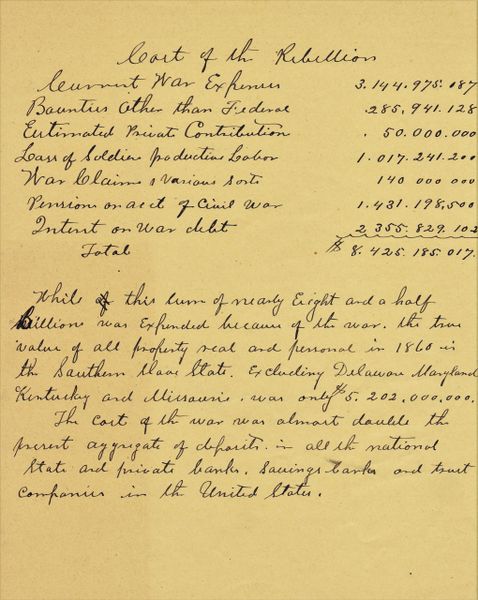 Cost of the Rebellion
Current War Expenses 3.144.975.187
Bounties Other than Federal .285,941.128
Estimated Private Contribution . 50.000.000
Loss of Soldiers productive Labor 1.017.241.200
War Claims & various sorts 140 000 000
Pensions on acct of Civil War 1.431.198,500
Interest on War debt 2 355.829.102
Total $8.425.185.017.
While this sum of nearly Eight and a half
Billions was Expended because of the war. the true
value of all property real and personal in 1860 in
the Southern Slave State. Excluding Delaware Maryland
Kentuskey and Missourie. was only $5.202,000,000.
The cost of the war was almost double the
present aggregate of deposits. in all the national
State and private banks. Savings banks and trust
Companies in the United States.